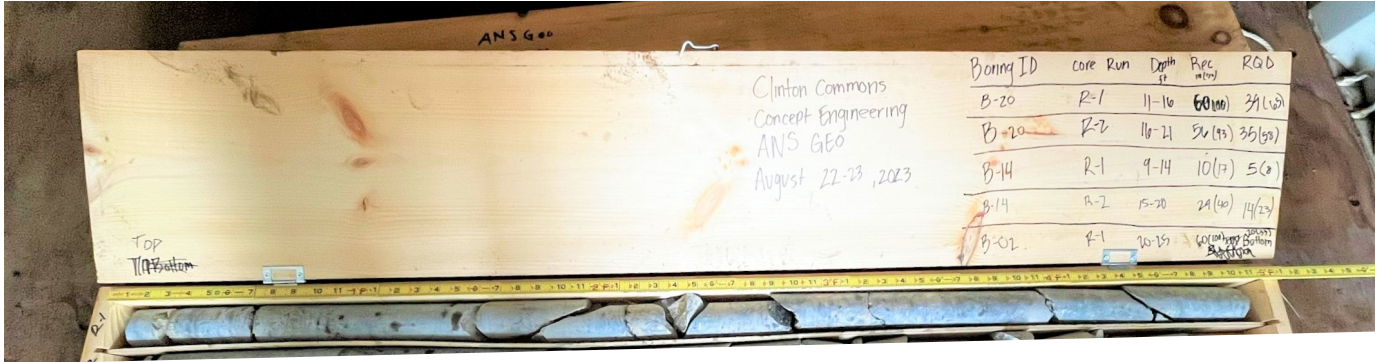 ANS Geo
Clinton Commons
Concept Engineering
ANS GEO
August 22-23, 2023
Boring ID core Run Depth ft Rec in(%) RQD
B-20 R-1 11-16 60(100) 39(65)
B-20 R-2 16-21 56(93) 35(58)
B-14 R-1 9-14 10(17) 5(8)
B-14 R-2 15-20 24(40) 14(23)
B-02 R-1 20-25 60(100)
Bottom
TOP
R-1